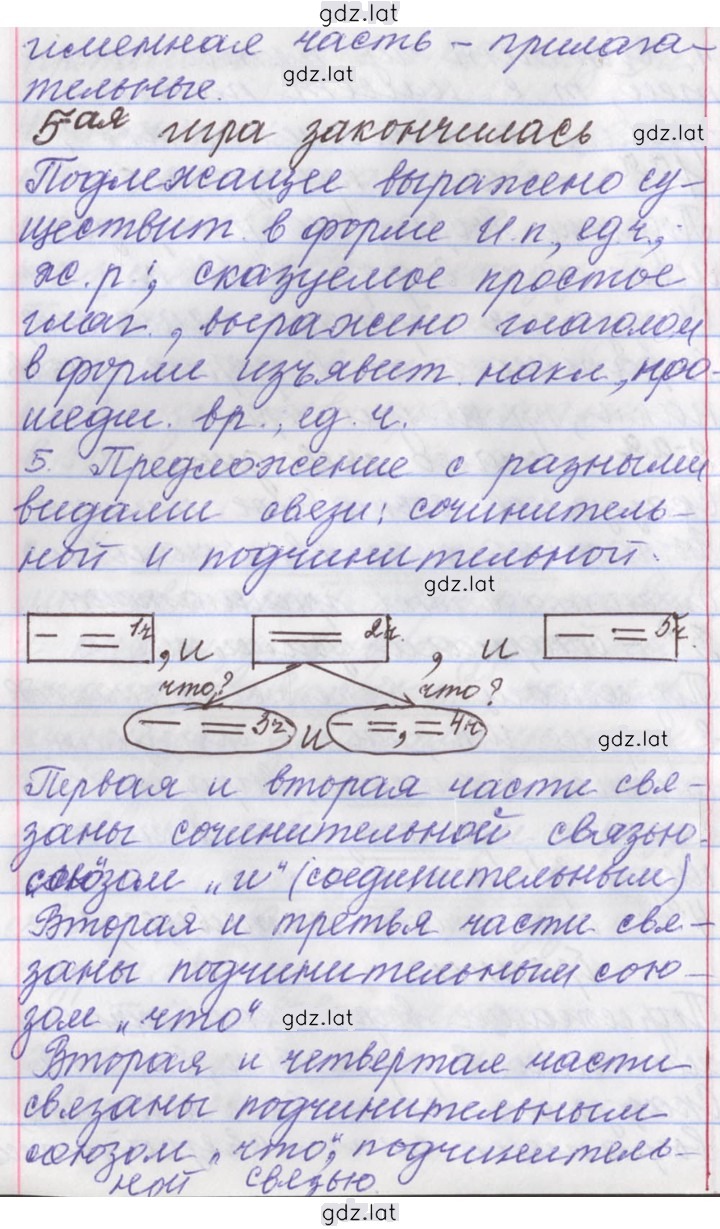 gdz.lat
именная часть – прилага-
gdz.lat
тельные.
5-ая игра закончилась gdz.lat
Подлежащее выражено су-
ществит. в форме И.п., ед.ч.,
ж.р.; сказуемое простое
глаг., выражено глаголом
в форме изъявит. накл., про-
шедш. вр., ед. ч.
5. Предложение с разными
видами связи: сочинитель-
ной и подчинительной.
gdz.lat
1ч , и 2ч. , и 5ч.
что? что?
3ч и , 4ч
gdz.lat
Первая и вторая части свя-
заны сочинительной связью.
союзом „и“ (соединительным)
Вторая и третья части свя-
заны подчинительным сою-
зом „что“ gdz.lat
Вторая и четвертая части
связаны подчинительным
союзом „что“, подчинитель-
ной связью.
gdz.lat